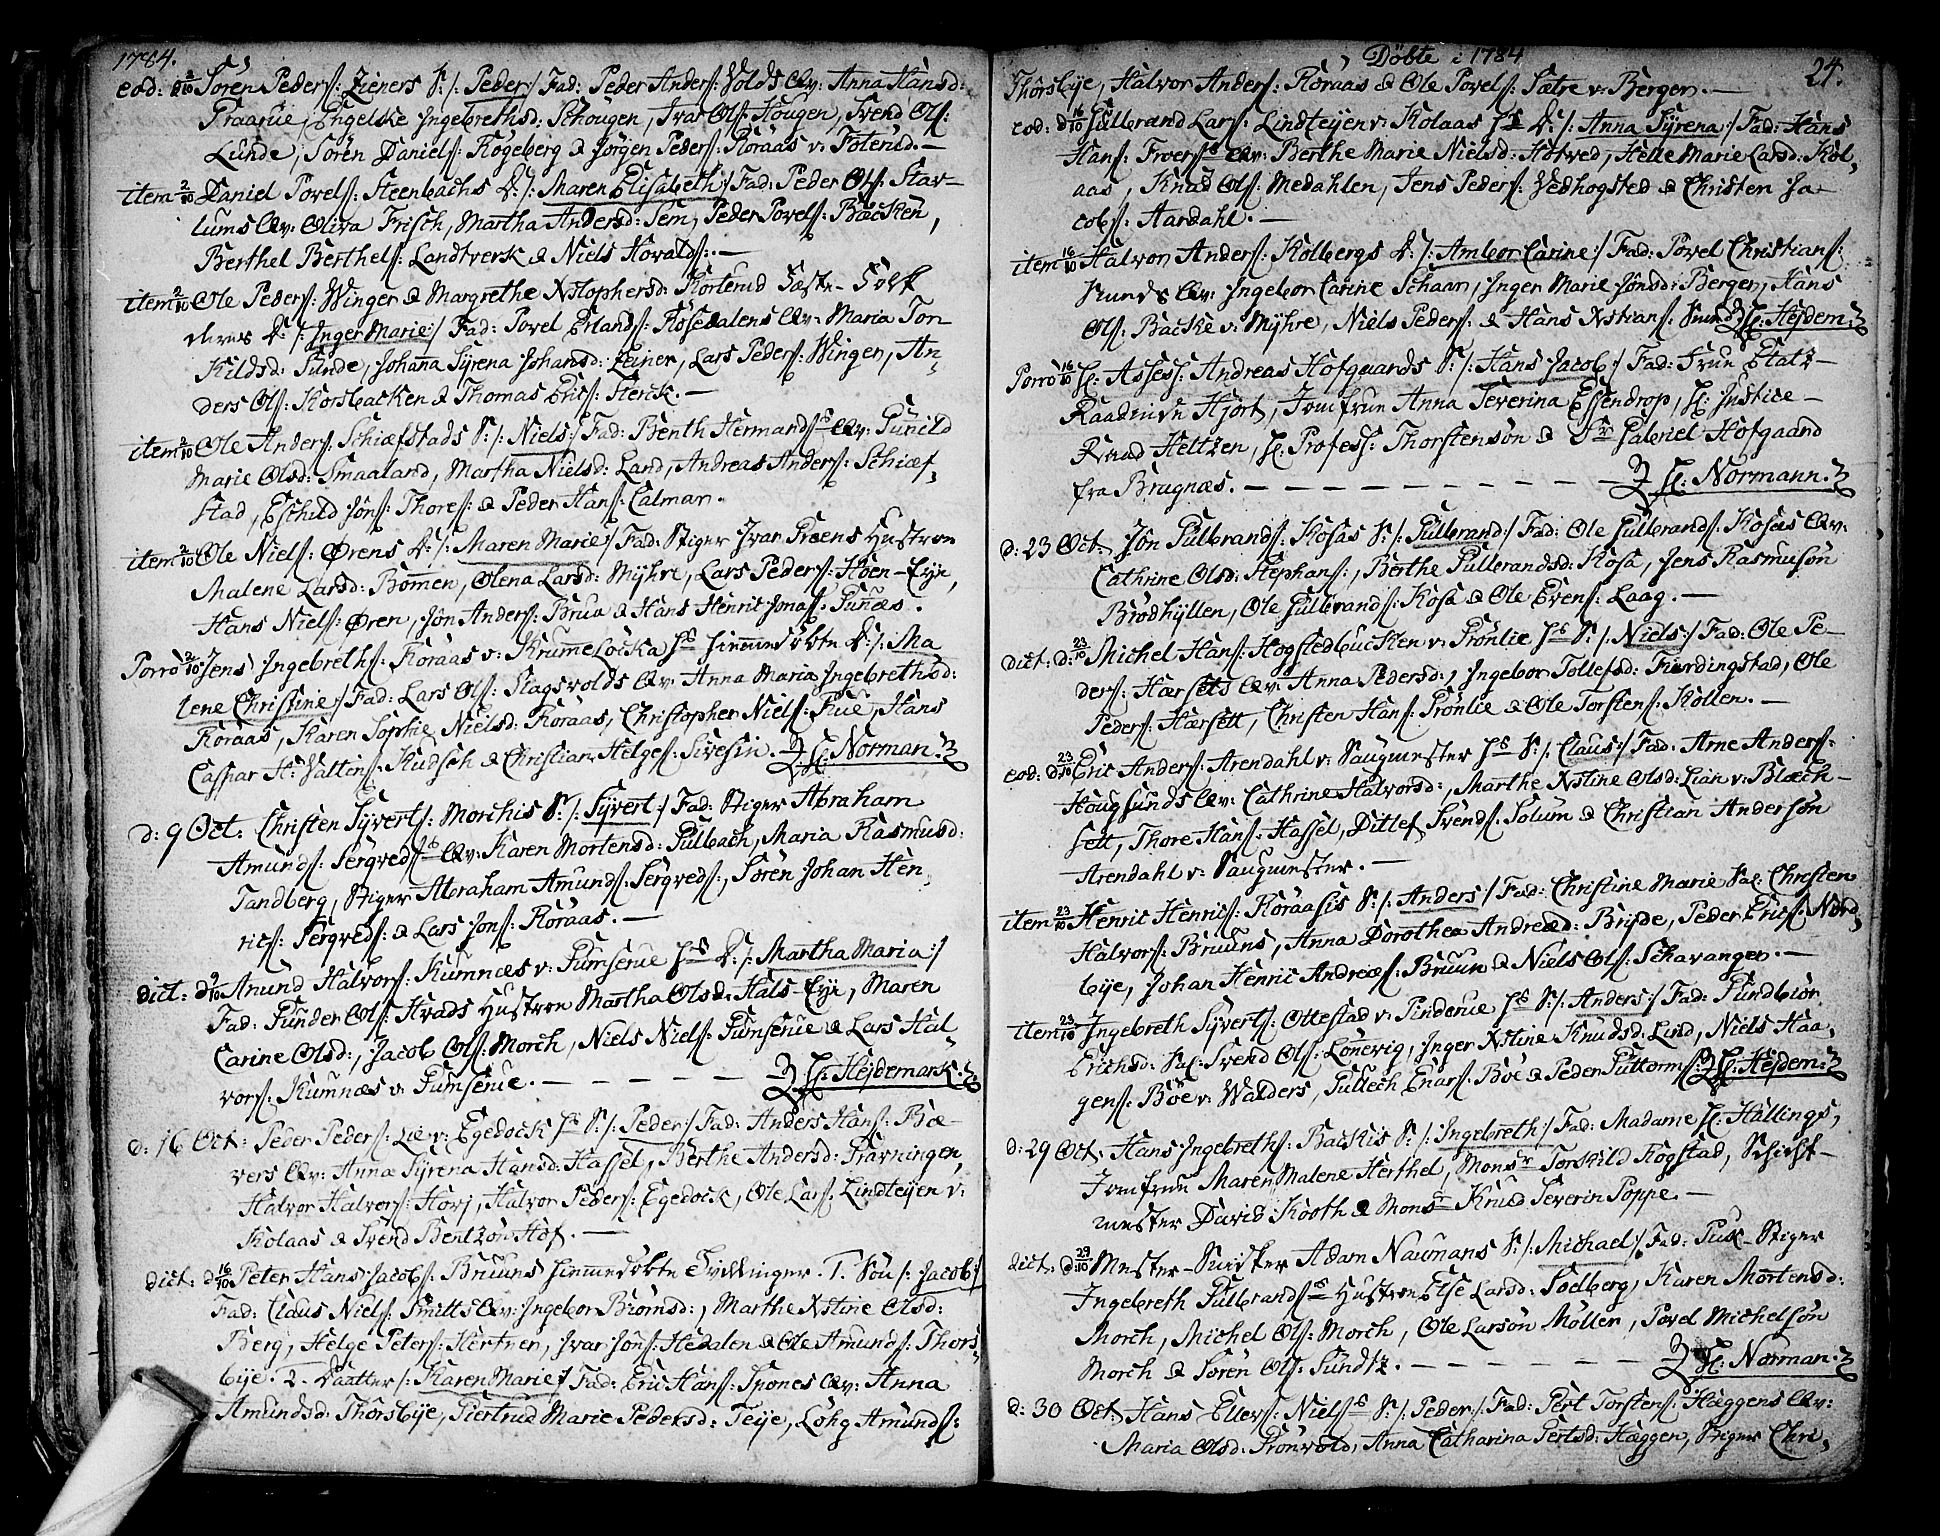 1784.
eod: d 2/10 Sören Peders: Zieners S: /: Peder :/ Fad: Peder Anders: Volds Qv: Anna Hansd:
Praarue, Engelske Ingebrethsd: Schougen, Ivar Ols: Hougen, Svend Ols:
Lunde, Sören Daniels: Fogeberg & Jørgen Peders: Roraas v: Totensd. —
item 2/10 Daniel Povels: Steenbachs D: /: Maren Elisabeth :/ Fad: Peder Ols: Stav-
lums Qv: Oliva Frisch, Martha Andersd: Sem, Peder Povels: Backen,
Berthel Berthels: Landtverk & Niels Hovalds: —
item 2/10 Ole Peders: Winger & Margrethe Xstophersd: Korterud Fæste-Folk
deres D: /: Inger Marie :/ Fad: Povel Erlands: Rosedalens Qv: Maria Tor-
kildsd: Funde, Johana Syrena Johansd: Zeiner, Lars Peders: Winger, An,
ders Ols: Korsbacken & Thomas Erics: Sterck. —
item 2/10 Ole Anders: Schiefstads S: /: Niels :/ Fad: Benth Hermands Qv: Gunild
Marie Olsd: Smaaland, Martha Nielsd: Land, Andreas Anders: Schief,
stad, Eschild Jöns: Thores: & Peder Hans: Calmar.
item 2/10 Ole Niels: Ørens D: /: Maren Marie :/ Fad: Stiger Ivar Preens Hustroe
Malene Larsd: Bömen, Olena Larsd: Myhre, Lars Peders: Hoen-Eye,
Hans Niels: Ören, Jön Anders: Brua & Hans Henric Jonas: Gunæs.
Porro 2/10 Jens Ingebreths: Roraas v: Krumelocka Hs hiemmedöbte D: /: Ma
lene Christine :/ Fad: Lars Ols: Slagsvolds Qv: Anna Maria Ingebrethsd:
Roraas, Karen Sophie Nielsd: Roraas, Christopher Niels: Rue, Hans
Caspar H: Saltens: Kudsch & Christian Helges: Sivesin. H: Norman.
d: 9 Oct: Christen Syverts: Morchis S: /: Syvert :/ Fad: Stiger Abraham
Amunds: Sergveds Qv: Karen Mortensd: Gulbach, Maria Rasmusd:
Tandberg, Stiger Abraham Amunds: Sergveds:, Sören Johan Hen,
rics: Sergveds: & Lars Jons: Roraas. —
dict: d 9/10 Amund Halvors: Kumnæs v: Gumserue Hs D: /: Martha Maria :/
Fad: Gunder Ols: Hvads Hustroe Martha Olsd: Hals-Eye, Maren
Carine Olsd:, Jacob Ols: Morch, Niels Niels: Gumserue & Lars Hal,
vors: Kumnæs v: Gumserue. — — — — — H: Hejdemark.
d: 16 Oct: Peder Peders: Lie v: Egedock Hs S: /: Peder :/ Fad: Anders Hans: Bæ-
vers Qv: Anna Syrena Hansd: Hassel, Berthe Andersd: Gravningen,
Halvor Halvors: Hovj, Halvor Peders: Egedock, Ole Lars: Lindteyen v:
Kolaas & Svend Bentzon Hof. —
dict: d 16/10 Peter Hans Jacobs: Bruuns hiemmedöbte Tvillinger. 1. Sön /: Jacob :/
Fad: Claus Niels: Smitts Qv: Ingebor Biörnsd:, Marthe Xstine Olsd:
Berg, Helge Peters: Hertner, Ivar Jöns: Hedalen & Ole Amunds: Thors,
bye. 2. Daatter /: Karen Marie :/ Fad: Eric Hans: Spones Qv: Anna
Amundsd: Thorsbye, Giertrud Marie Pedersd: Teije, Lohg Amunds:
Döbte i 1784
24.
Thorsbye, Halvor Anders: Roraas & Ole Povels: Sætre v: Bergen. —
eod: d 16/10 Gulbrand Lars: Lindteyen v: Kolaas Hs D: /: Anna Syrena :/ Fad: Hans
Hans: Froers Qv: Berthe Marie Nielsd: Hotved, Helle Marie Larsd: Kol,
aas, Knud Ols: Medahlen, Jens Peders: Vedhogsted & Christen Ja-
cobs: Aardahl. —
item 16/10 Halvor Anders: Kolbergs D: /: Ambor Carine :/ Fad: Povel Christians:
Hunds Qv: Ingebor Carine Schaan, Inger Marie Jönsd: Bergen, Hans
Ols: Backe v: Myhre, Niels Peders: & Hans Xstians: Hund. H: Hejdem:
Porro 16/10 H: Assess: Andreas Hofgaards S: /: Hans Jacob :/ Fad: Frue Etatz-
Raadinde Hjort, Jomfrue Anna Severina Essendrop, H: Justice-
Raad Heltzen, H: Profess: Thorstensön & Sr Gabriel Hofgaard
fra Brugnæs. — — — — — — — H: Normann.
d: 23 Oct: Jön Gulbrands: Kosas S: /: Gulbrand :/ Fad: Ole Gulbrands: Kosæs Qv:
Cathrine Olsd: Stephans:, Berthe Gulbrandsd: Kosa, Jens Rasmusön
Brödhyllen, Ole Gulbrands: Kosa & Ole Evens: Laag. —
dict: d: 23/10 Michel Hans: Hogstedbucken v: Grönlie Hs S: /: Niels :/ Fad: Ole Pe-
ders: Hærsetts Qv: Anna Pedersd:, Ingebor Tollefsd: Fierdingstad, Ole
Peders: Hærsett, Christen Hans: Grönlie & Ole Torstens: Kollen. —
eod: d 23/10 Eric Anders: Arendahl v: Saugmester Hs S: /: Claus :/ Fad: Arne Anders:
Hougsunds Qv: Cathrine Halvorsd:, Marthe Xstine Olsd: Lian v: Blæch-
sett, Thore Hans: Hassel, Ditlef Svends: Solum & Christian Andersön
Arendahl v: Saugmester. —
item 23/10 Henric Henrics: Roraasis S: /: Anders :/ Fad: Christine Marie Sal: Christen
Halvors: Bruuns, Anna Dorothea Andreæd: Bryde, Peder Erics: Nord,
bye, Johan Henric Andreæs: Bruun & Niels Ols: Schavanger. —
item 23/10 Ingebreth Syverts: Ottestad v: Pinderue Hs S: /: Anders :/ Fad: Gundbiör
Erichsd: Sal: Svend Ols: Lönevig, Inger Xstine Knudsd: Lind, Niels Haa,
gens: Böe v: Walders, Gullech Enars: Böe & Peder Guttorms: H: Hejdem:
d: 29 Oct: Hans Ingebreths: Backis S: /: Ingebreth :/ Fad: Madame H: Hallings,
Jomfrue Maren Malene Herthel, Monsr Torkild Fogstad, Schicht-
mester David Kooth & Monsr Knud Severin Poppe. —
dict: d 29/10 Mester-Suidker Adam Naumans S: /: Michael :/ Fad: Puk-Stiger
Ingebreth Gulbrands Hustroe Else Larsd: Soelberg, Karen Mortensd:
Morch, Michel Ols: Morch, Ole Larsön Möller, Povel Michelsön
Morch & Sören Ols: Sundtz. — — — — — — H: Norman.
d: 30 Oct: Hans Ellers: Niels S: /: Peder :/ Fad: Gert Torstens: Hæggens Qv:
Maria Olsd: Grönvold, Anna Catharina Gertsd: Hæggen, Stiger Chri,